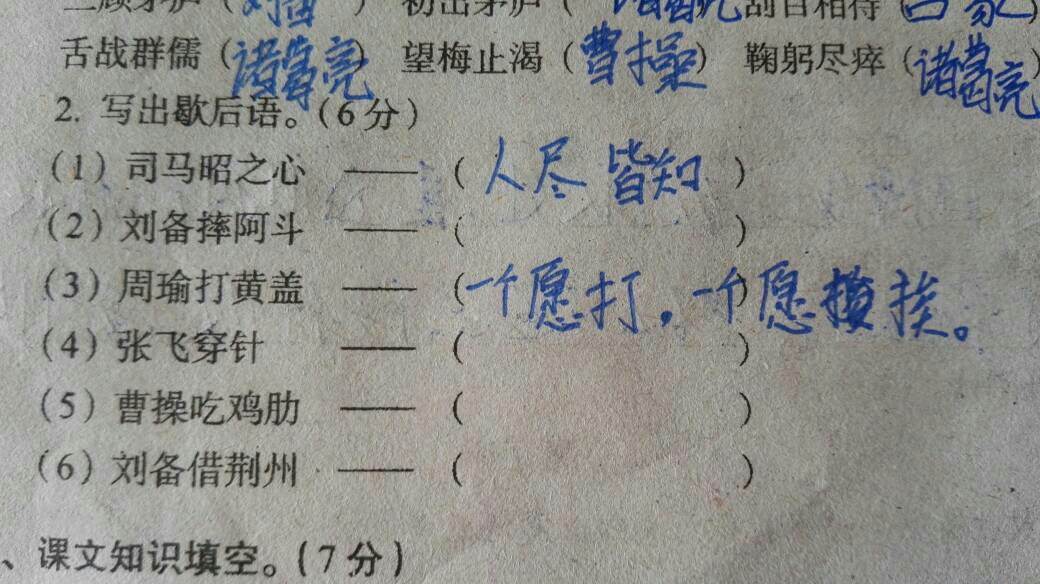 三顾茅庐（刘备）初出茅庐（诸葛亮 刮目相待（吕蒙）
舌战群儒（诸葛亮）望梅止渴（曹操）鞠躬尽瘁（诸葛亮）
2. 写出歇后语。（6分）
（1）司马昭之心 ——（人尽皆知）
（2）刘备摔阿斗 ——（ ）
（3）周瑜打黄盖 ——（一个愿打，一个愿挨。
（4）张飞穿针 ——（ ）
（5）曹操吃鸡肋 ——（ ）
（6）刘备借荆州 ——（ ）
、课文知识填空。（7分）